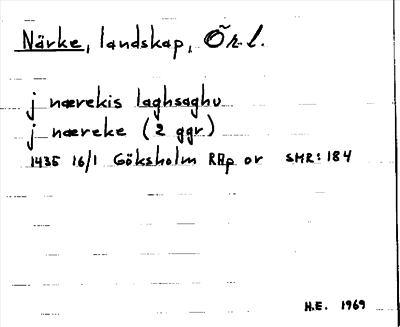 Närke, landskap, Ör.l.
j nærekis laghsaghu
j næreke (2 ggr)
1435 16/1 Göksholm RAp or SMR:184
H.E. 1969